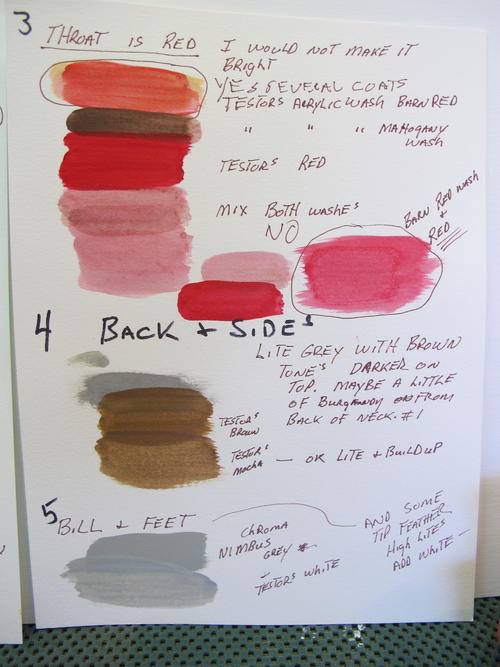 3
THROAT IS RED
I WOULD NOT MAKE IT
BRIGHT
YES SEVERAL COATS
TESTORS ACRYLIC WASH BARN RED
" " " MAHOGANY
WASH
TESTORS RED
MIX BOTH WASHES
NO
BARN RED WASH
+
RED
4 BACK + SIDES
LITE GREY WITH BROWN
TONE'S DARKER ON
TOP. MAYBE A LITTLE
OF BURGANDY ON FROM
BACK OF NECK. #1
TESTORS
BROWN
TESTORS
MOCHA — OR LITE + BUILD UP
5 BILL + FEET
CHROMA
NIMBUS
GREY
TESTORS WHITE
AND SOME
TIP FEATHER
HIGH LITES
ADD WHITE —